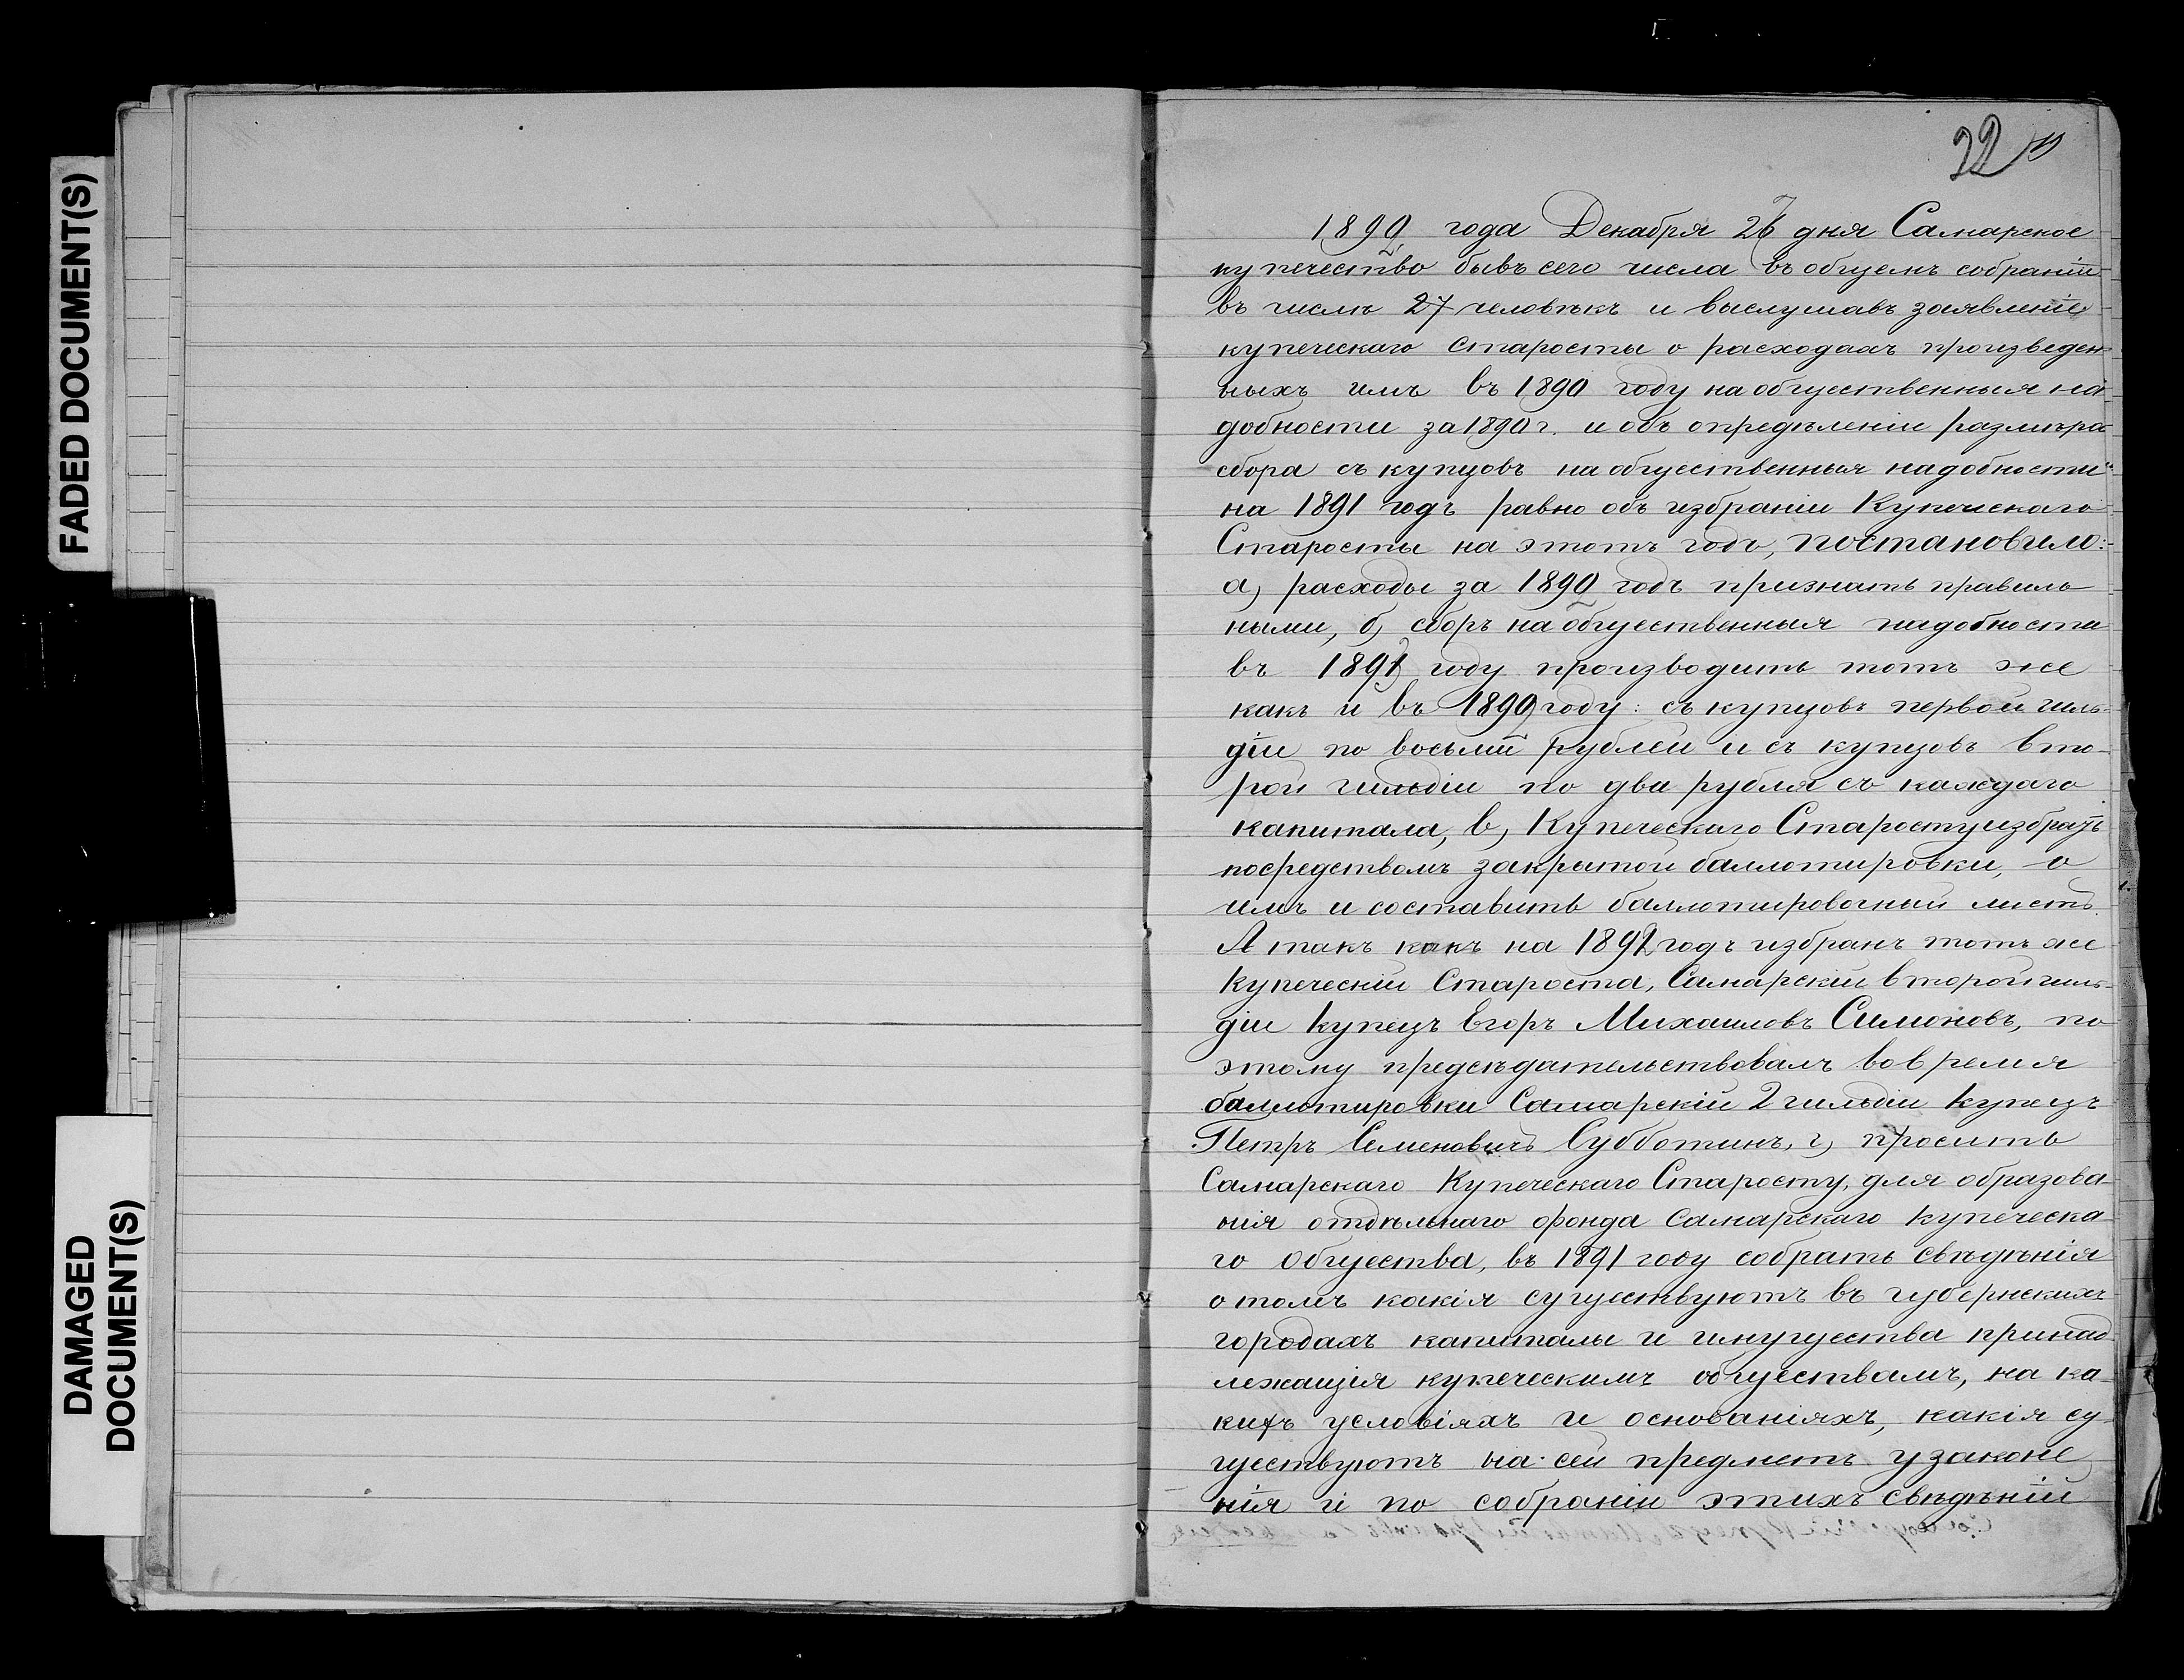 FADED DOCUMENT(S)
DAMAGED
DOCUMENT(S)
22
1890 года Декабря 27 дня Самарское
купечество бывъ сего числа въ общемъ собраніи
въ числѣ 27 человѣкъ и выслушавъ заявленіе
купеческаго старосты о расходахъ произведен
ныхъ имъ въ 1890 году на общественныя на-
добности за 1890 г. и объ опредѣленіи размѣра
сбора съ купцовъ на общественныя надобности
на 1891 годъ равно объ избраніи Купеческаго
Старосты на этотъ годъ, постановило:
а) расходы за 1890 годъ признать правиль-
ными, б) сборъ на общественныя надобности
въ 1891 году производить тотъ же
какъ и въ 1890 году: съ купцовъ первой гиль-
діи по восьми рублей и съ купцовъ вто-
рой гильдіи по два рубля съ каждаго
капитала, в) Купеческаго Старосту избрать
посредствомъ закрытой баллотировки, о
чемъ и составить баллотировочный листъ.
А такъ какъ на 1891 годъ избранъ тотъ же
Купеческій Староста, Самарскій второй гиль-
діи купецъ Егоръ Михаиловъ Симоновъ, по
этому предсѣдательствовалъ вовремя
баллотировки Самарскій 2 гильдіи Купецъ
Петръ Семеновичъ Субботинъ, г) просить
Самарскаго Купеческаго Старосту, для образова
нія отдѣльнаго фонда Самарскаго купеческа-
го общества, въ 1891 году собрать свѣдѣнія
о томъ какія существуютъ въ губернскихъ
городахъ капиталы и имущества принад
лежащія купеческимъ обществамъ, на ка-
кихъ условіяхъ и основаніяхъ, какія су-
ществуютъ на сей предметъ узаконе
нія и по собраніи этихъ свѣдѣній